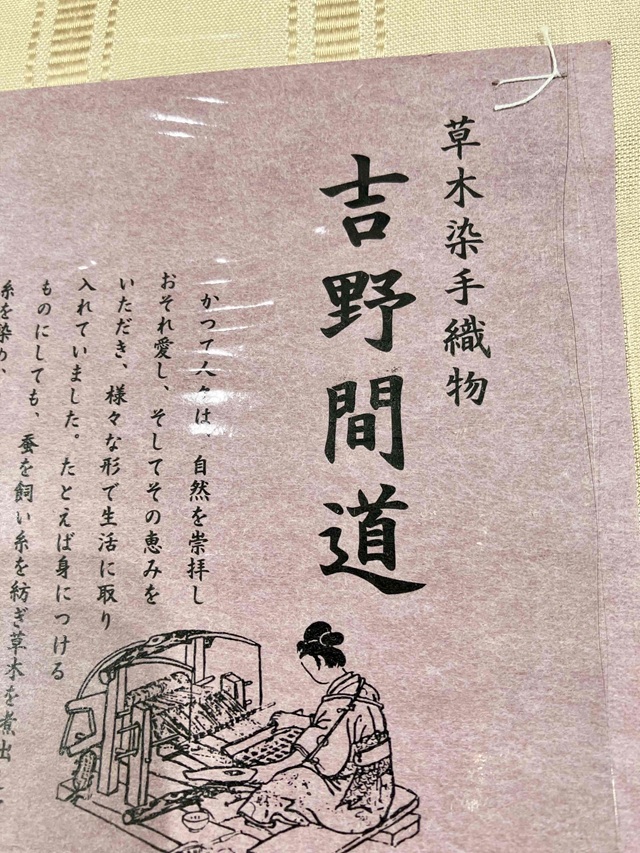 草木染手織物
吉野間道
かつて人々は、自然を崇拝し
おそれ愛し、そしてその恵みを
いただき、様々な形で生活に取り
入れていました。たとえば身につける
ものにしても、蚕を飼い糸を紡ぎ草木を煮出
糸を染め、